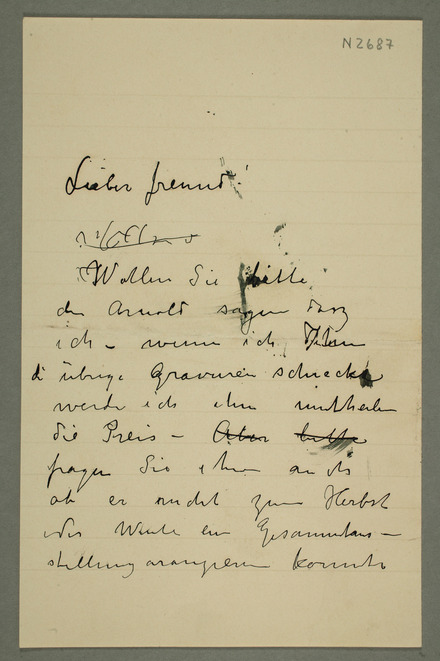 N2687
Lieber Freund!
Wollen Sie bitte
den Arnold sagen dasz
ich – wenn ich Ihm
di übrige Gravuren schicke
werde ich ihm mittheilen
die Preis – Aber bitte
fragen Sie ihm
ob er nicht zum Herbst
oder Winter ein Gesammtaus–
stellung arangieren konnte